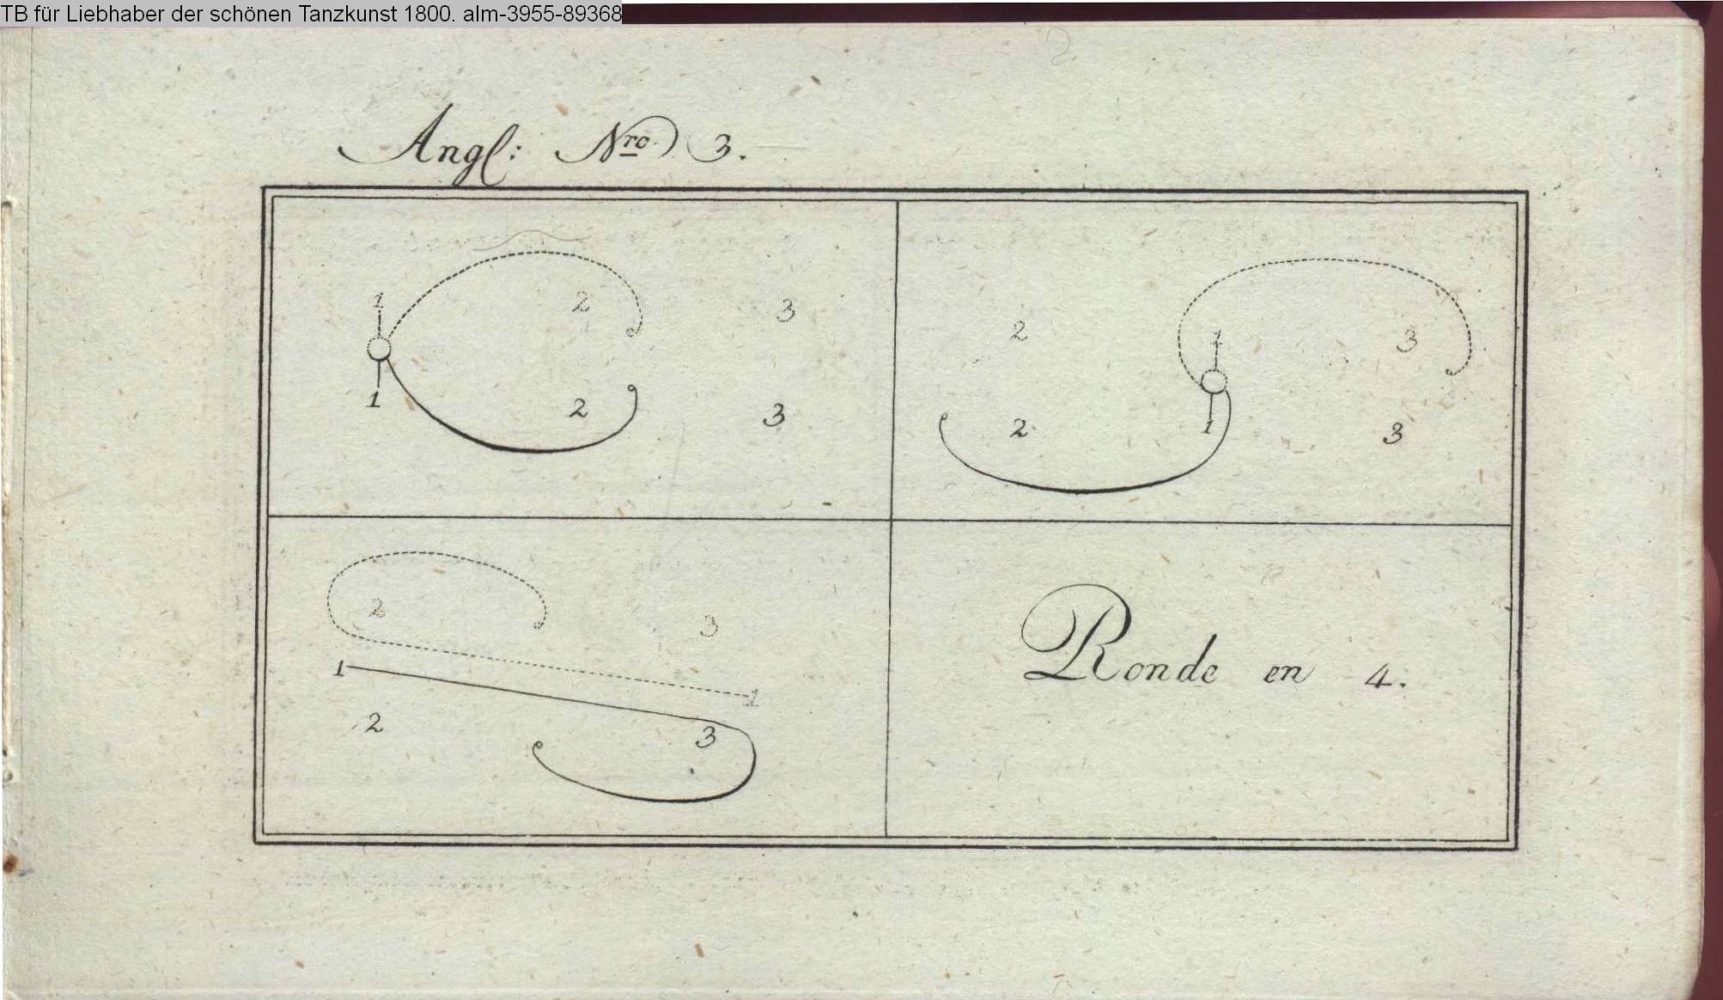 TB für Liebhaber der schönen Tanzkunst 1800. alm-3955-89368
Angl: Nro 3.
1 2 3
1 2 3
2 1 3
2 1 3
2 3
1 1
2 3
Ronde en 4.